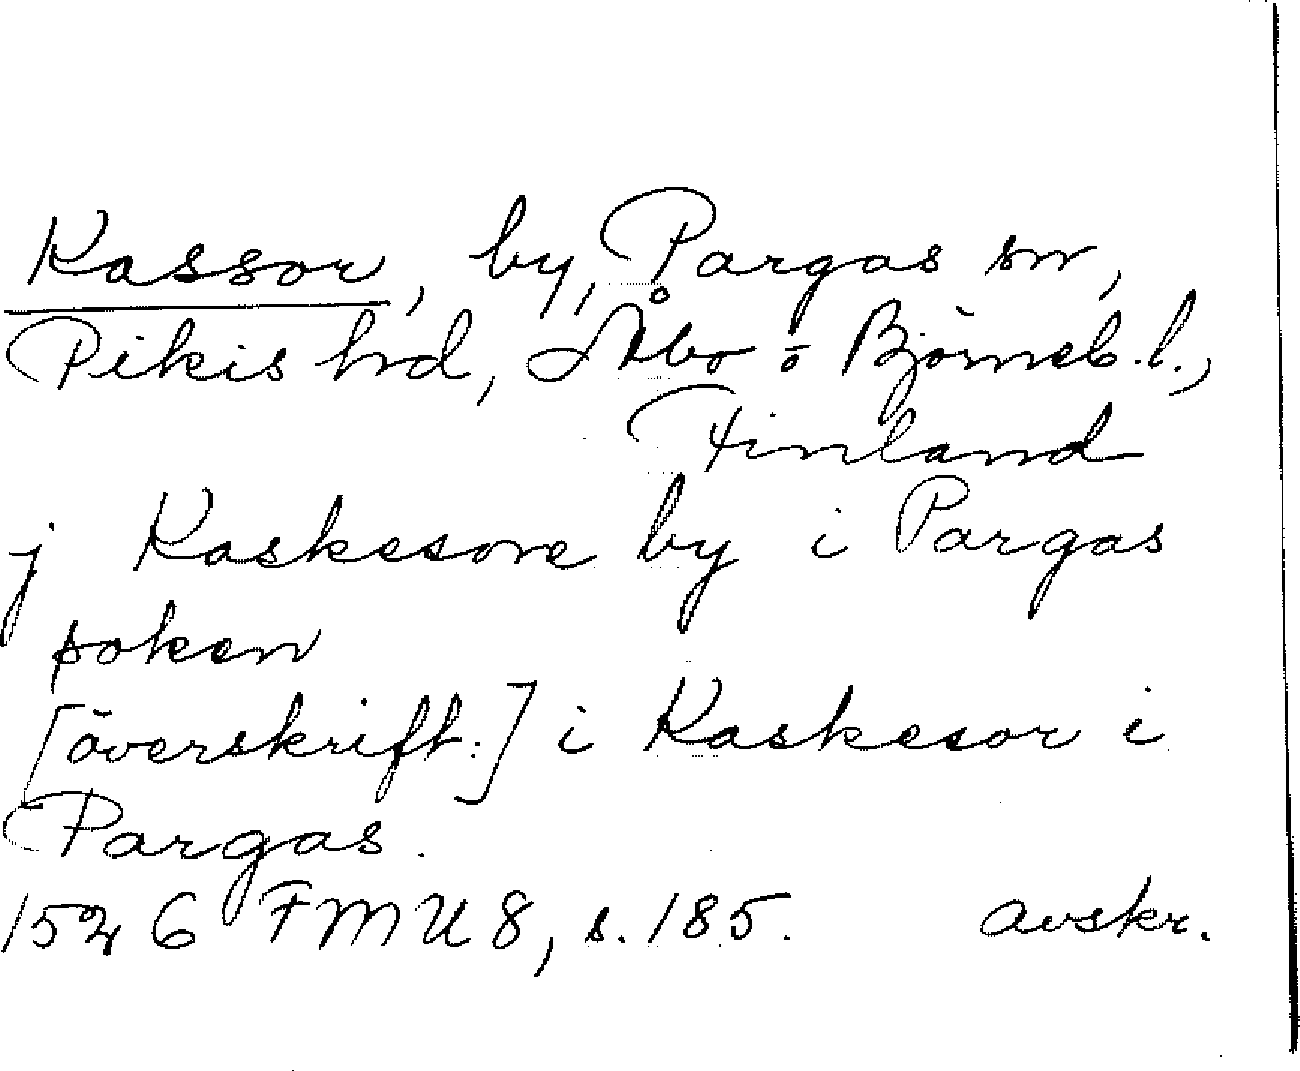 Kassor, by, Pargas sn,
Pikis hrd, Åbo o Björneb. l.,
Finland
j Kaskesore by i Pargas
soken
[överskrift:] i Kaskesor i
Pargas.
1526 FMU 8, s. 185. avskr.